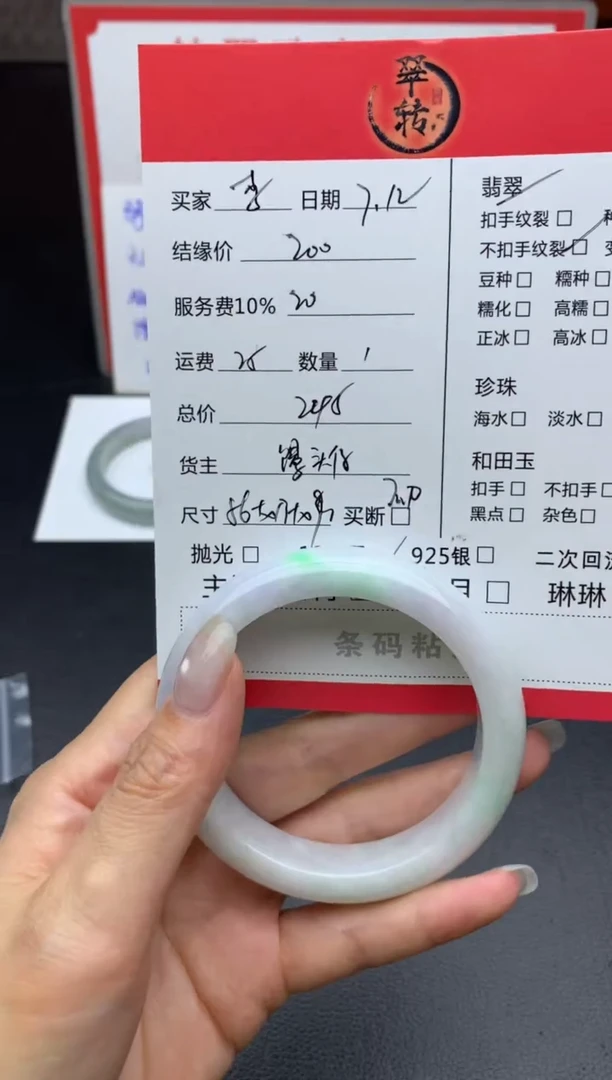 翠
转
买家 日期 7.12
结缘价 200
服务费10% 20
运费 数量 1
总价
货主
尺寸 买断□
抛光□ 925银□ 二次回流
□ 琳琳
条码粘
翡翠
扣手纹裂□
不扣手纹裂□
豆种□ 糯种□
糯化□ 高糯□
正冰□ 高冰□
珍珠
海水□ 淡水□
和田玉
扣手□ 不扣手□
黑点□ 杂色□